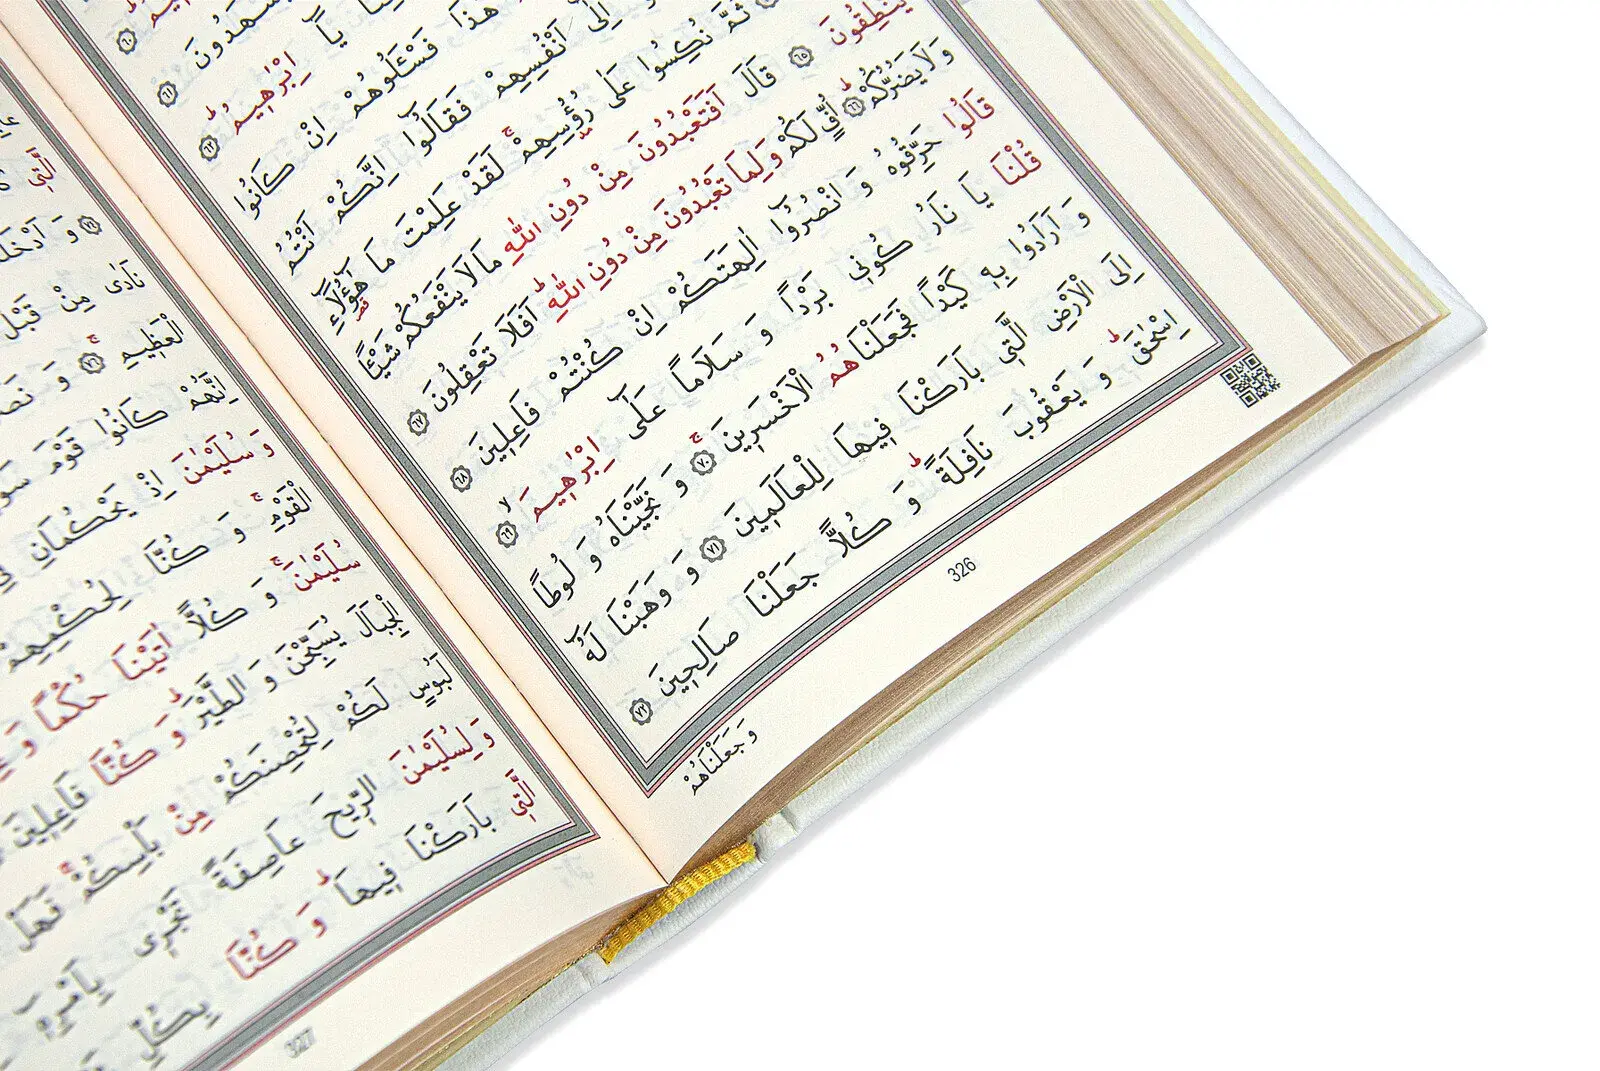 ٦٠
يَشْهَدُونَ ٦١
يَٓا اِبْرٰهِيمُ ٦٢
هٰذَا فَسْـَٔلُوهُمْ اِنْ كَانُوا
اِلٰٓى اَنْفُسِهِمْ فَقَالُٓوا اِنَّكُمْ اَنْتُمُ
ثُمَّ نُكِسُوا عَلٰى رُؤُسِهِمْ لَقَدْ عَلِمْتَ مَا هٰٓؤُلَٓاءِ
يَنْطِقُونَ ٦٥ قَالَ اَفَتَعْبُدُونَ مِنْ دُونِ اللّٰهِ مَا لَا يَنْفَعُكُمْ شَيْئًا
وَلَا يَضُرُّكُمْ ٦٦ اُفٍّ لَكُمْ وَلِمَا تَعْبُدُونَ مِنْ دُونِ اللّٰهِ اَفَلَا تَعْقِلُونَ ٦٧
قَالُوا حَرِّقُوهُ وَ انْصُرُٓوا اٰلِهَتَكُمْ اِنْ كُنْتُمْ فَاعِلِينَ ٦٨
قُلْنَا يَا نَارُ كُونِي بَرْدًا وَ سَلَامًا عَلٰٓى اِبْرٰهِيمَ ٦٩
وَ اَرَادُوا بِهِ كَيْدًا فَجَعَلْنَاهُمُ الْاَخْسَرِينَ ٧٠ وَ نَجَّيْنَاهُ وَ لُوطًا
اِلَى الْاَرْضِ الَّتِي بَارَكْنَا فِيهَا لِلْعَالَمِينَ ٧١ وَ وَهَبْنَا لَهُٓ
اِسْحٰقَ وَ يَعْقُوبَ نَافِلَةً وَ كُلاًّ جَعَلْنَا صَالِحِينَ ٧٢
وَ جَعَلْنَاهُمْ
326
الَّتِي
٧٤ وَ
نَادٰى مِنْ قَبْلُ
الْعَظِيمِ ٧٦ وَ
اِنَّهُمْ كَانُوا قَوْمَ
وَ سُلَيْمٰنَ اِذْ يَحْكُمَانِ
الْقَوْمِ وَ كُنَّا لِحُكْمِهِمْ
سُلَيْمٰنَ وَ كُلاًّ اٰتَيْنَا حُكْمًا وَ
الْجِبَالَ يُسَبِّحْنَ وَ الطَّيْرَ وَ كُنَّا فَاعِلِينَ
لَبُوسٍ لَكُمْ لِتُحْصِنَكُمْ مِنْ بَأْسِكُمْ فَهَلْ
وَ لِسُلَيْمٰنَ الرِّيحَ عَاصِفَةً تَجْرِي بِاَمْرِهِٓ
الَّتِي بَارَكْنَا فِيهَا وَ كُنَّا بِكُلِّ
327